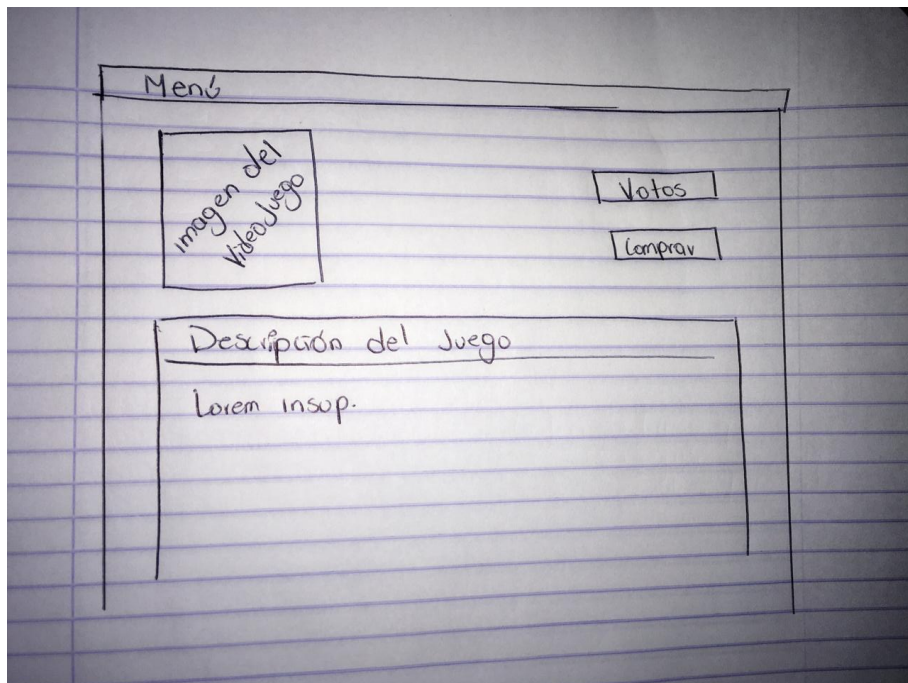 Menú
Imagen del
VideoJuego
Votos
Comprar
Descripción del Juego
Lorem insup.